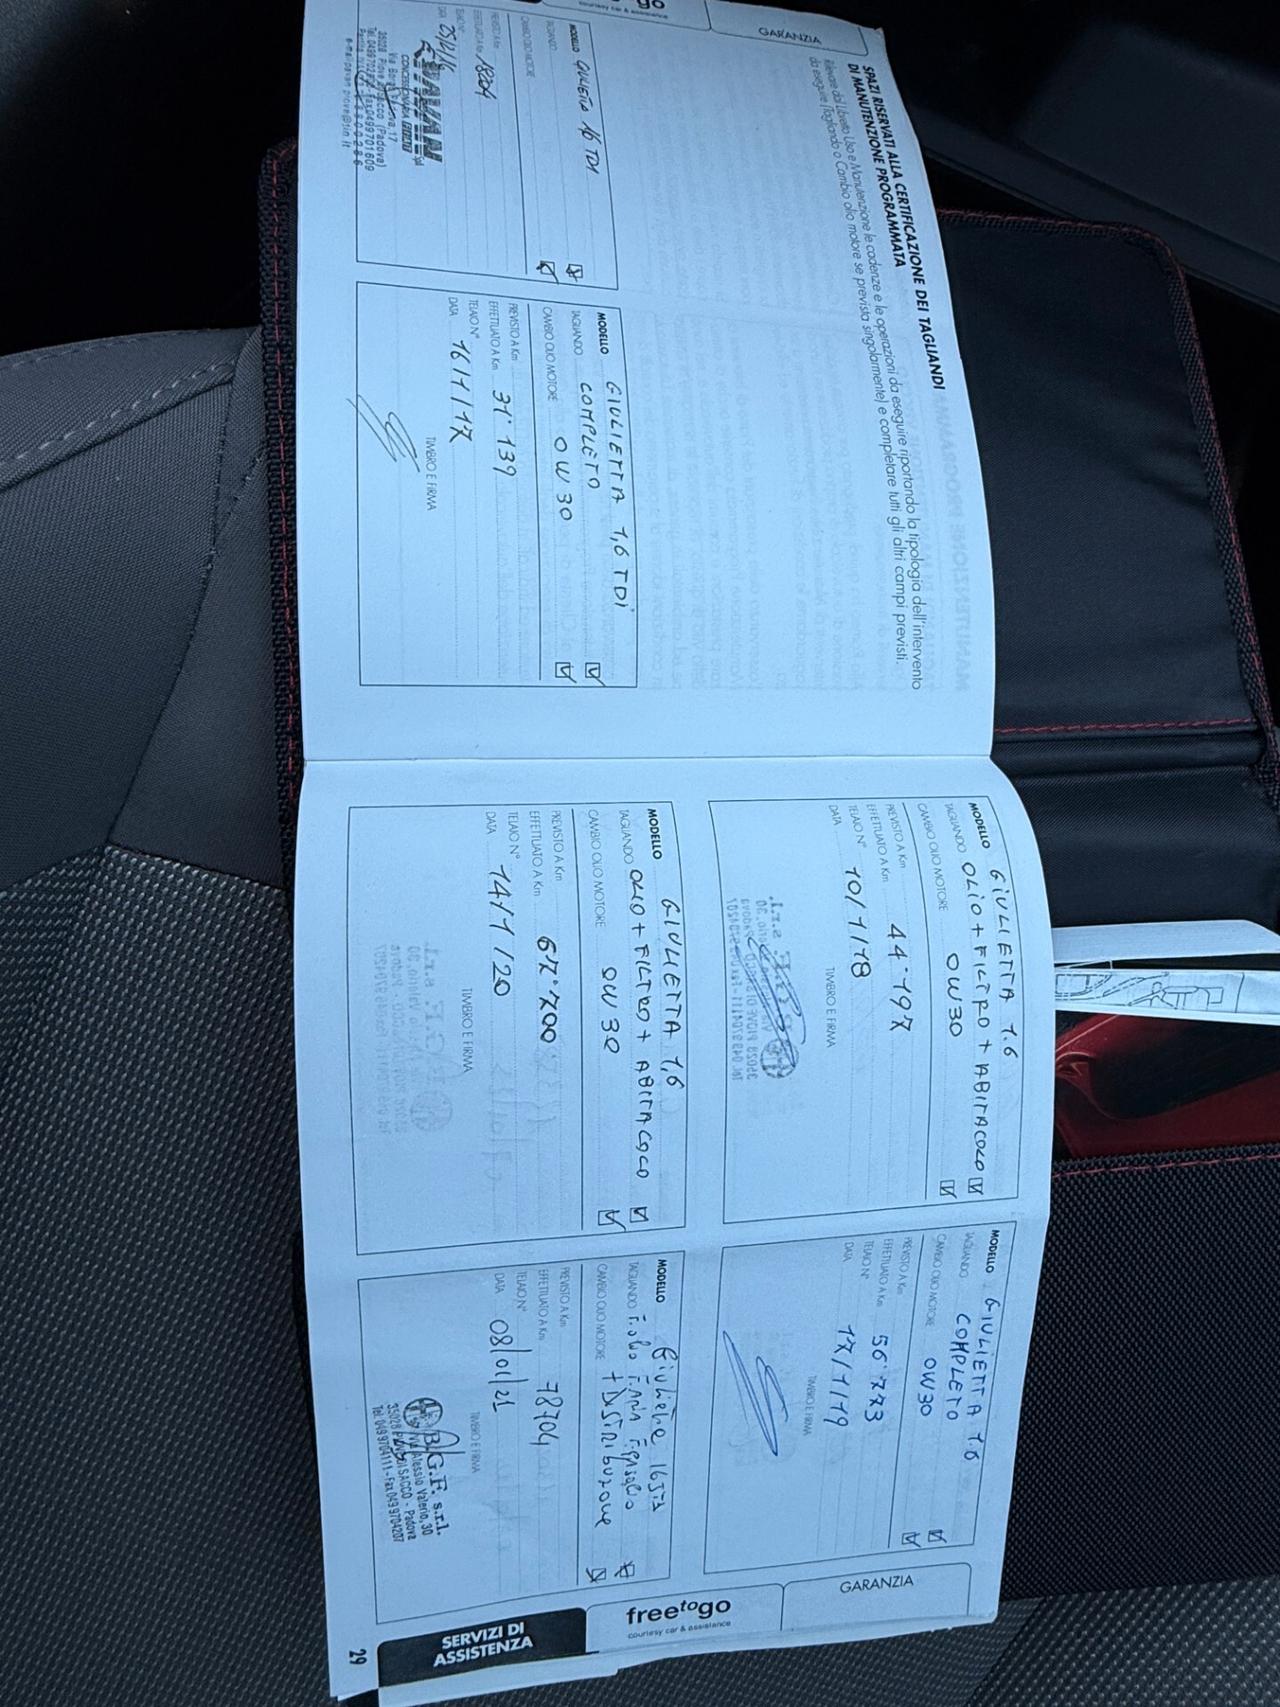 go
courtesy car & assistance
GARANZIA
SPAZI RISERVATI ALLA CERTIFICAZIONE DEI TAGLIANDI
DI MANUTENZIONE PROGRAMMATA
Rilevare dal Libretto Uso e Manutenzione le cadenze e le operazioni da eseguire riportando la tipologia dell'intervento
da eseguire (Tagliando o Cambio olio motore se prevista singolarmente) e completare tutti gli altri campi previsti.
MODELLO GIULIETTA 1,6 TDI
TAGLIANDO
CAMBIO OLIO MOTORE
PREVISTO A Km
EFFETTUATO A Km 18204
TELAIO N°
DATA
PAVAN
CONCESSIONARIA
35028 Piove di Sacco (Padova)
Fax 0499701609
MODELLO GIULIETTA 1,6 TDI
TAGLIANDO COMPLETO
CAMBIO OLIO MOTORE 0W30
PREVISTO A Km
EFFETTUATO A Km 31.139
TELAIO N°
DATA 16/1/17
TIMBRO E FIRMA
MODELLO GIULIETTA 1.6
TAGLIANDO OLIO + FILTRO + ABITACOLO
CAMBIO OLIO MOTORE 0W30
PREVISTO A Km
EFFETTUATO A Km 44.197
TELAIO N°
DATA 10/1/18
TIMBRO E FIRMA
MODELLO GIULIETTA 1.6
TAGLIANDO COMPLETO
CAMBIO OLIO MOTORE 0W30
PREVISTO A Km
EFFETTUATO A Km 56.773
TELAIO N°
DATA 17/1/19
TIMBRO E FIRMA
MODELLO GIULIETTA 1,6
TAGLIANDO OLIO + FILTRO + ABITACOLO
CAMBIO OLIO MOTORE 0W30
PREVISTO A Km
EFFETTUATO A Km 67.700
TELAIO N°
DATA 14/1/20
TIMBRO E FIRMA
MODELLO Giulietta
TAGLIANDO
CAMBIO OLIO MOTORE + DISTRIBUZIONE
PREVISTO A Km
EFFETTUATO A Km 78704
TELAIO N°
DATA 08/01/21
TIMBRO E FIRMA
B.G.F. s.r.l.
Via Alessio Valerio, 30
35028 PIOVE DI SACCO - Padova
Tel. 049 9704111 - Fax 049 9704207
GARANZIA
freetogo
courtesy car & assistance
SERVIZI DI
ASSISTENZA
29